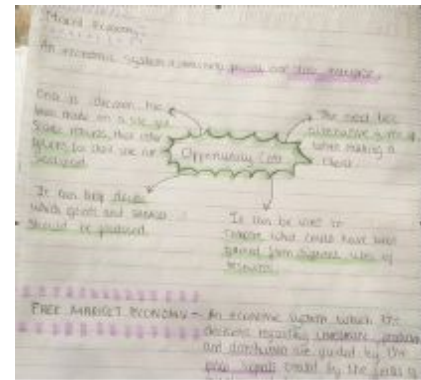 Mixed Economy:
An economic system combining private and state enterprise.
Once a decision has
been made on a use of a
scarce resource, then other
options for their use are
sacrificed.
The next best
alternative given up
when making a
choice.
Opportunity Cost
It can help decide
which goods and services
should be produced.
It can be used to
compare what could have been
gained from different uses of
resources.
FREE MARKET ECONOMY - An economic system which the
decisions regarding investment, production
and distribution are guided by the
price signals created by the forces of